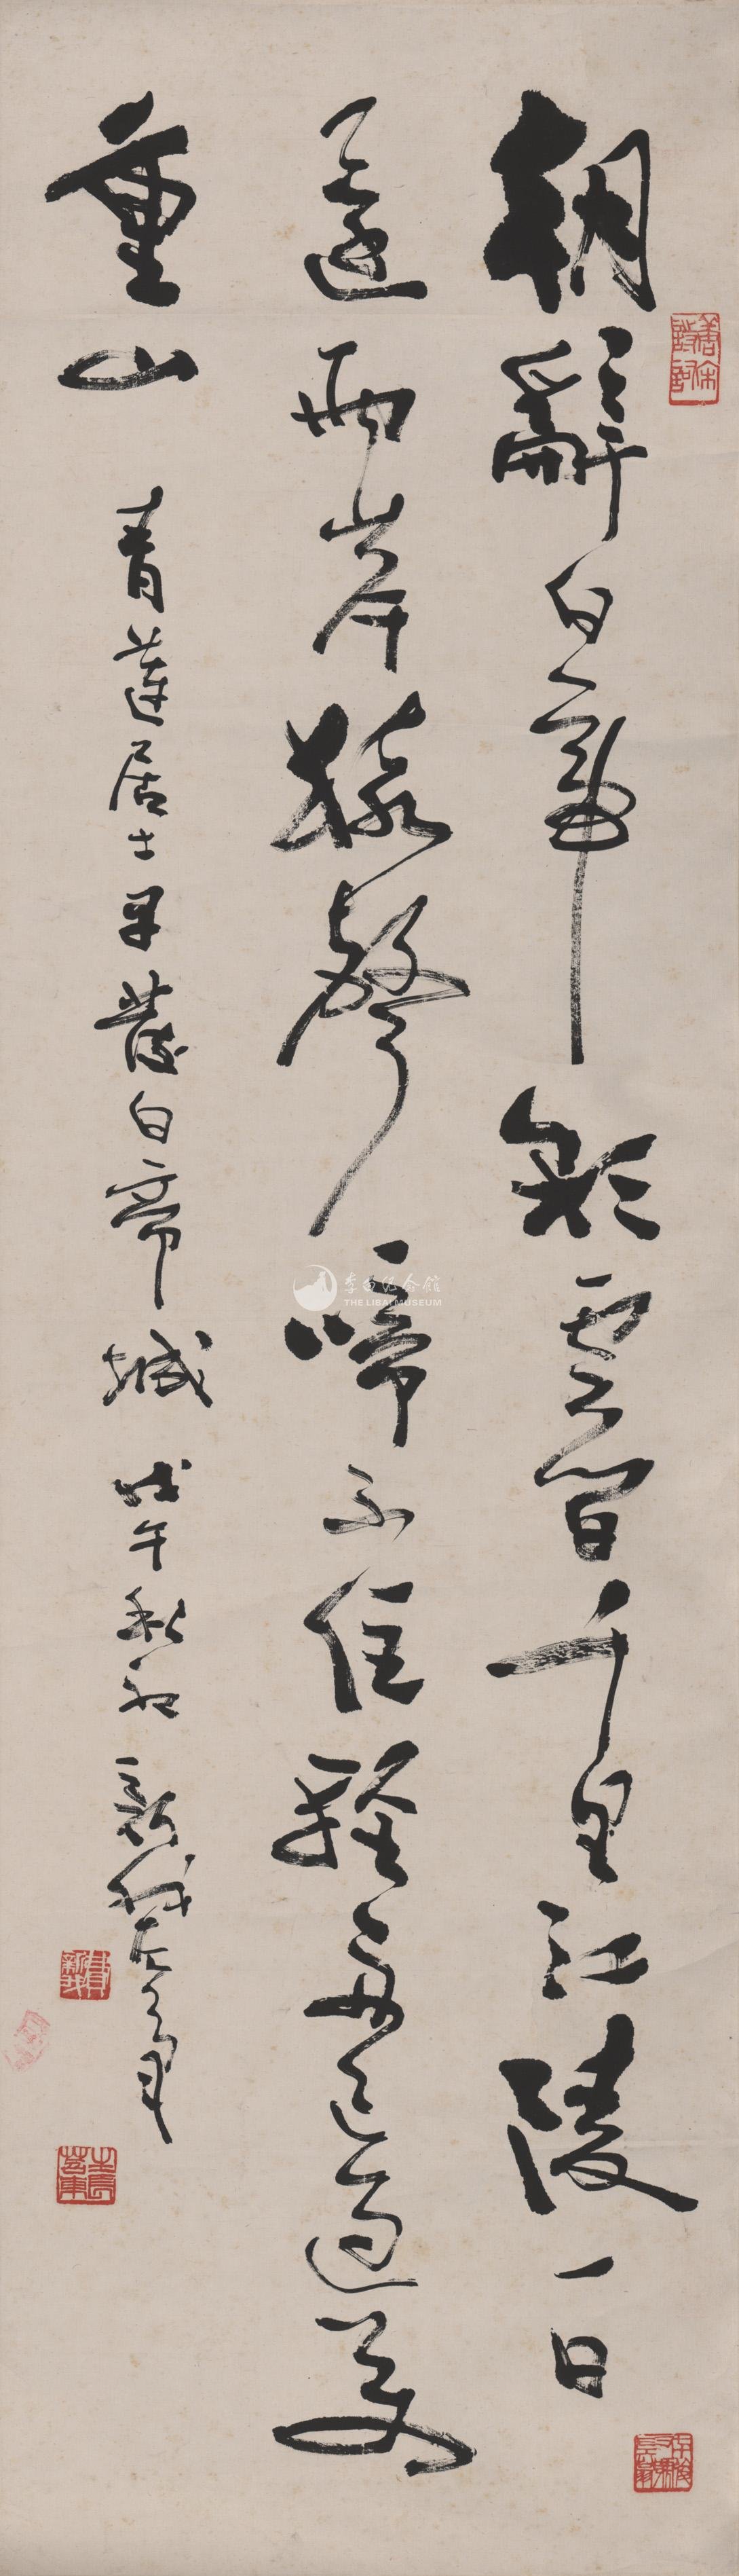 朝辭白帝彩雲間千里江陵一日
還兩岸猿聲啼不住輕舟已過萬
重山
青蓮居士早發白帝城 戊午秋初 新城
李白纪念馆
THE LIBAI MUSEUM